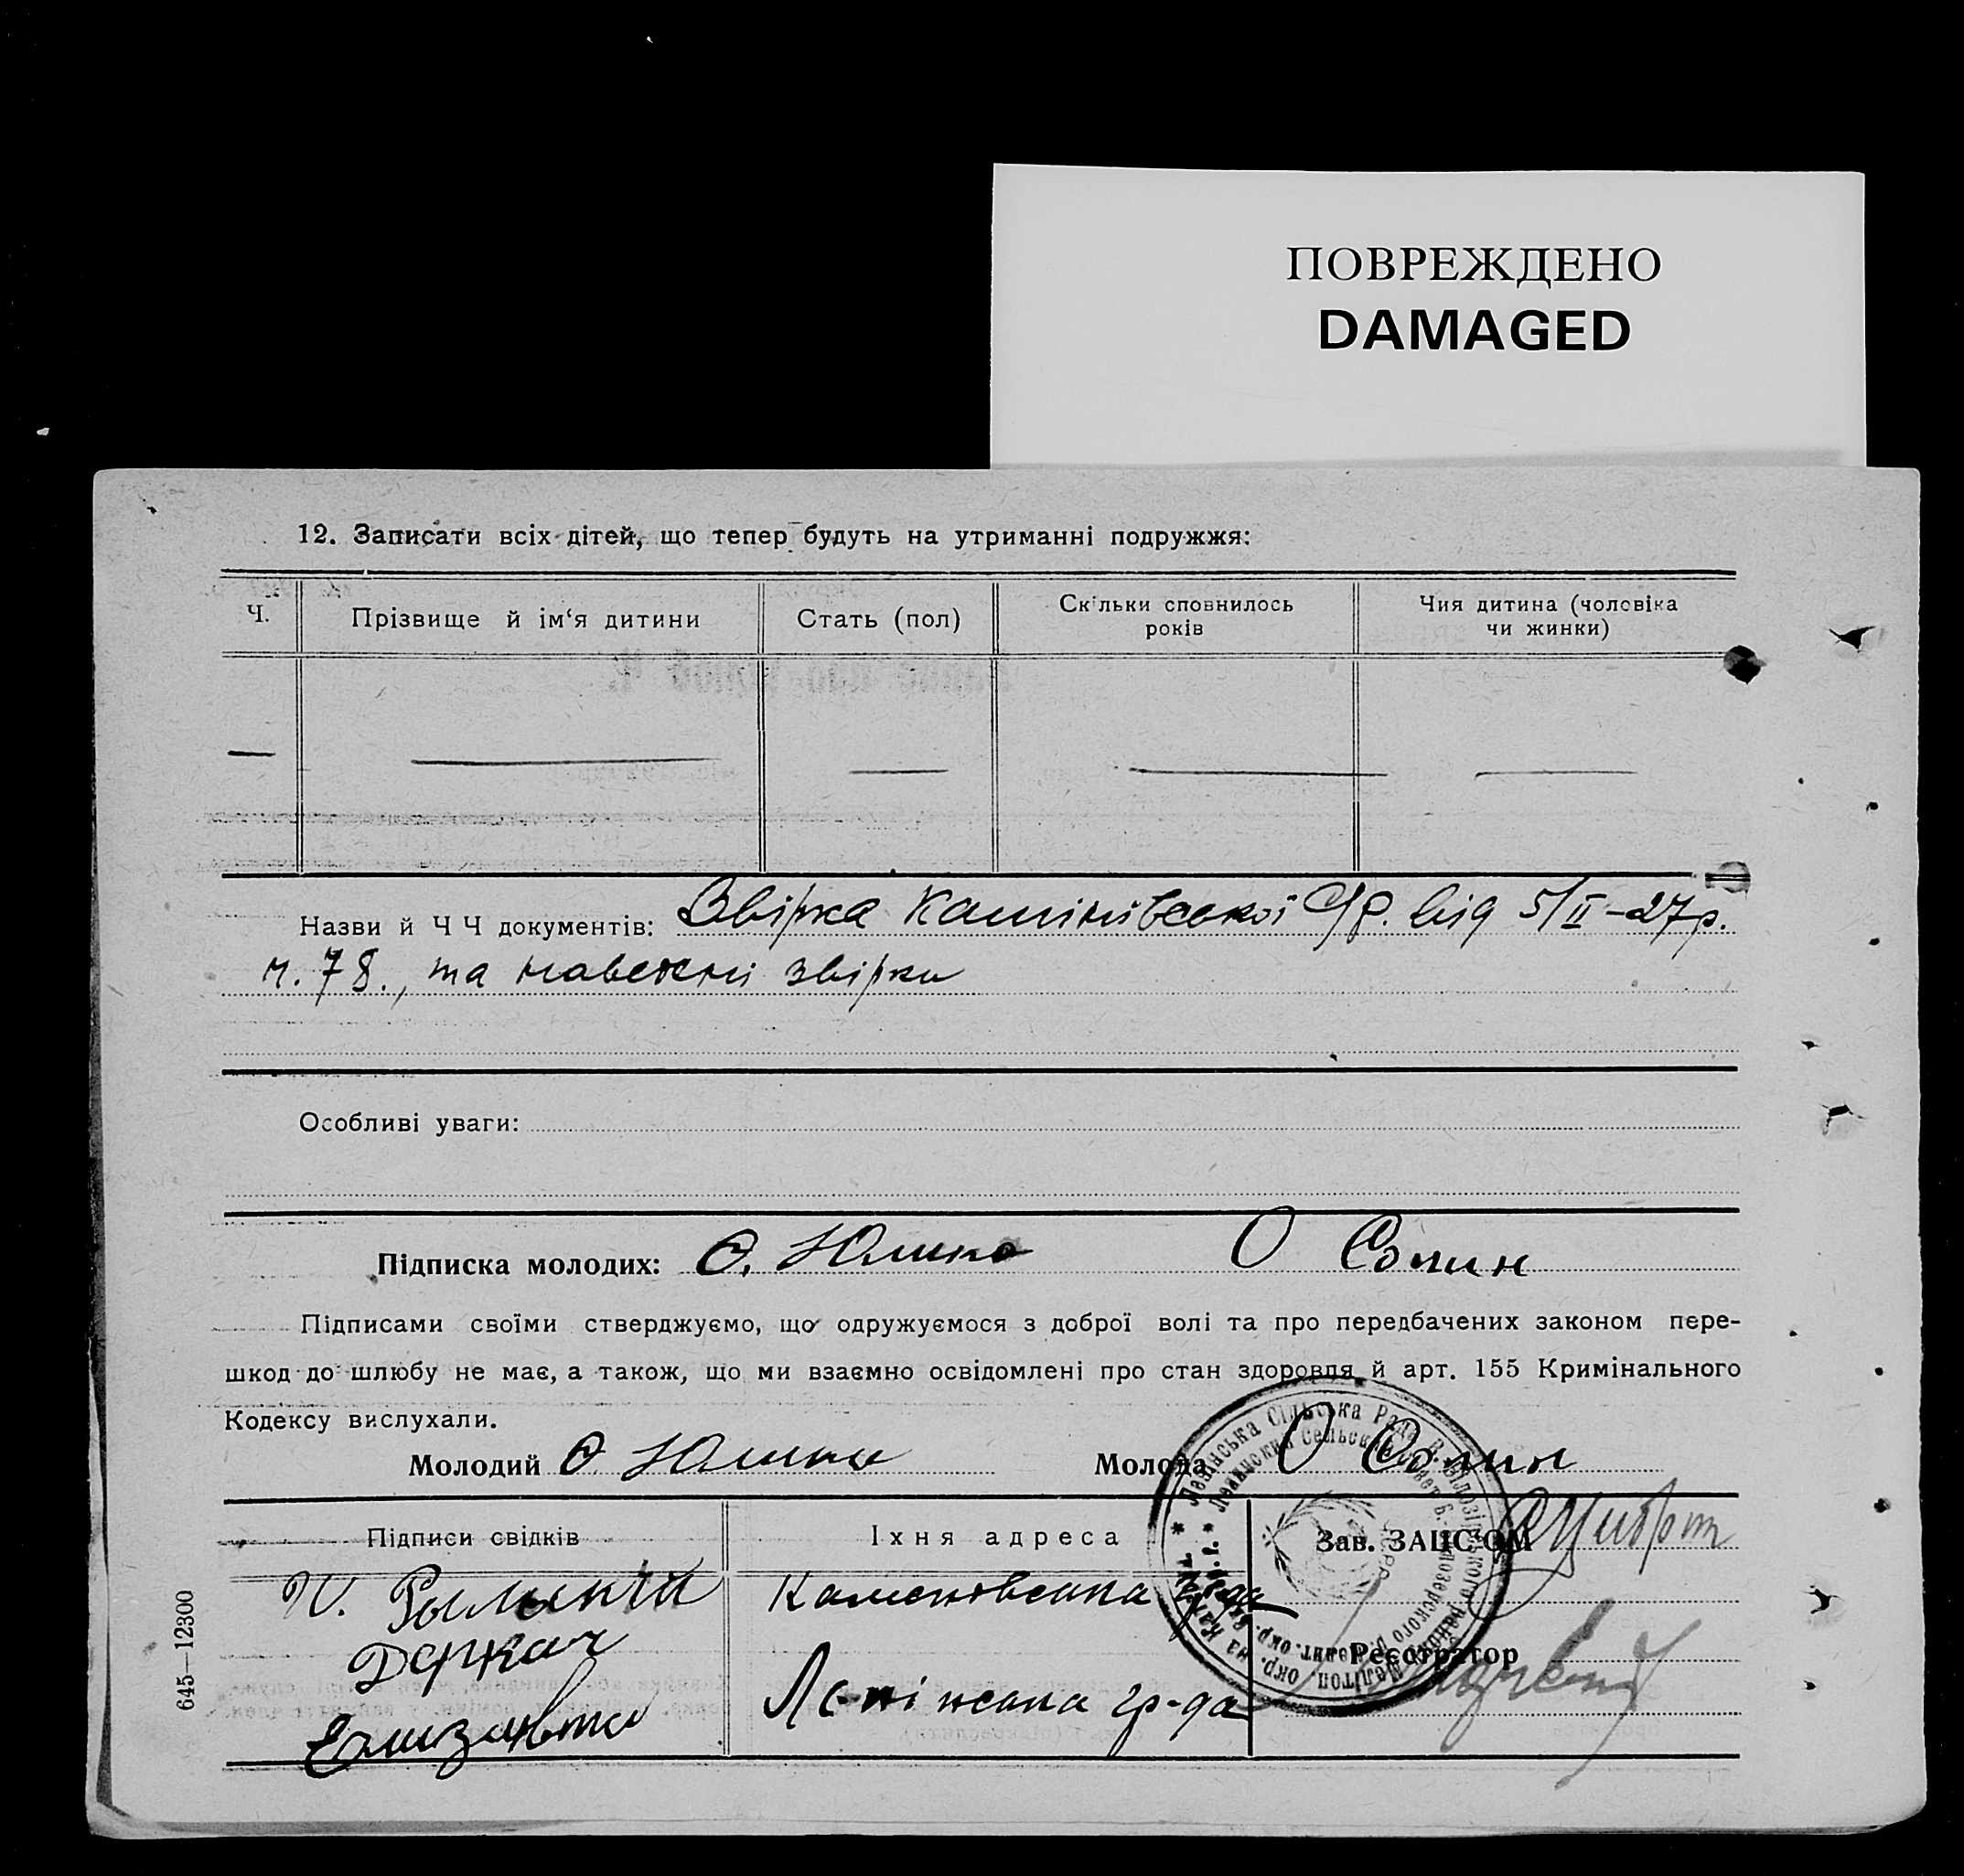 ПОВРЕЖДЕНО
DAMAGED
12. Записати всіх дітей, що тепер будуть на утриманні подружжя:
Ч.
Прізвище й ім‘я дитини
Стать (пол)
Скільки сповнилось
років
Чия дитина (чоловіка
чи жинки)
Назви й Ч Ч документів: Звірка Камінівської С/р. від 5/II-27р.
ч. 78., та звірки
Особливі уваги:
Підписка молодих: О. Юшко О Сомин
Підписами своїми стверджуємо, що одружуємося з доброї волі та про передбачених законом пере-
шкод до шлюбу не має, а також, що ми взаємно освідомлені про стан здоровля й арт. 155 Кримінального
Кодексу вислухали.
Молодий О Юшко Молода О Сомин
Підписи свідків
Їхня адреса
Зав. ЗАЦС‘ОМ
Деркач
Єлизавта
Каменовська
Ленінська гр-да
Реєстратор
Ленінська Сільська Рада
645—12300